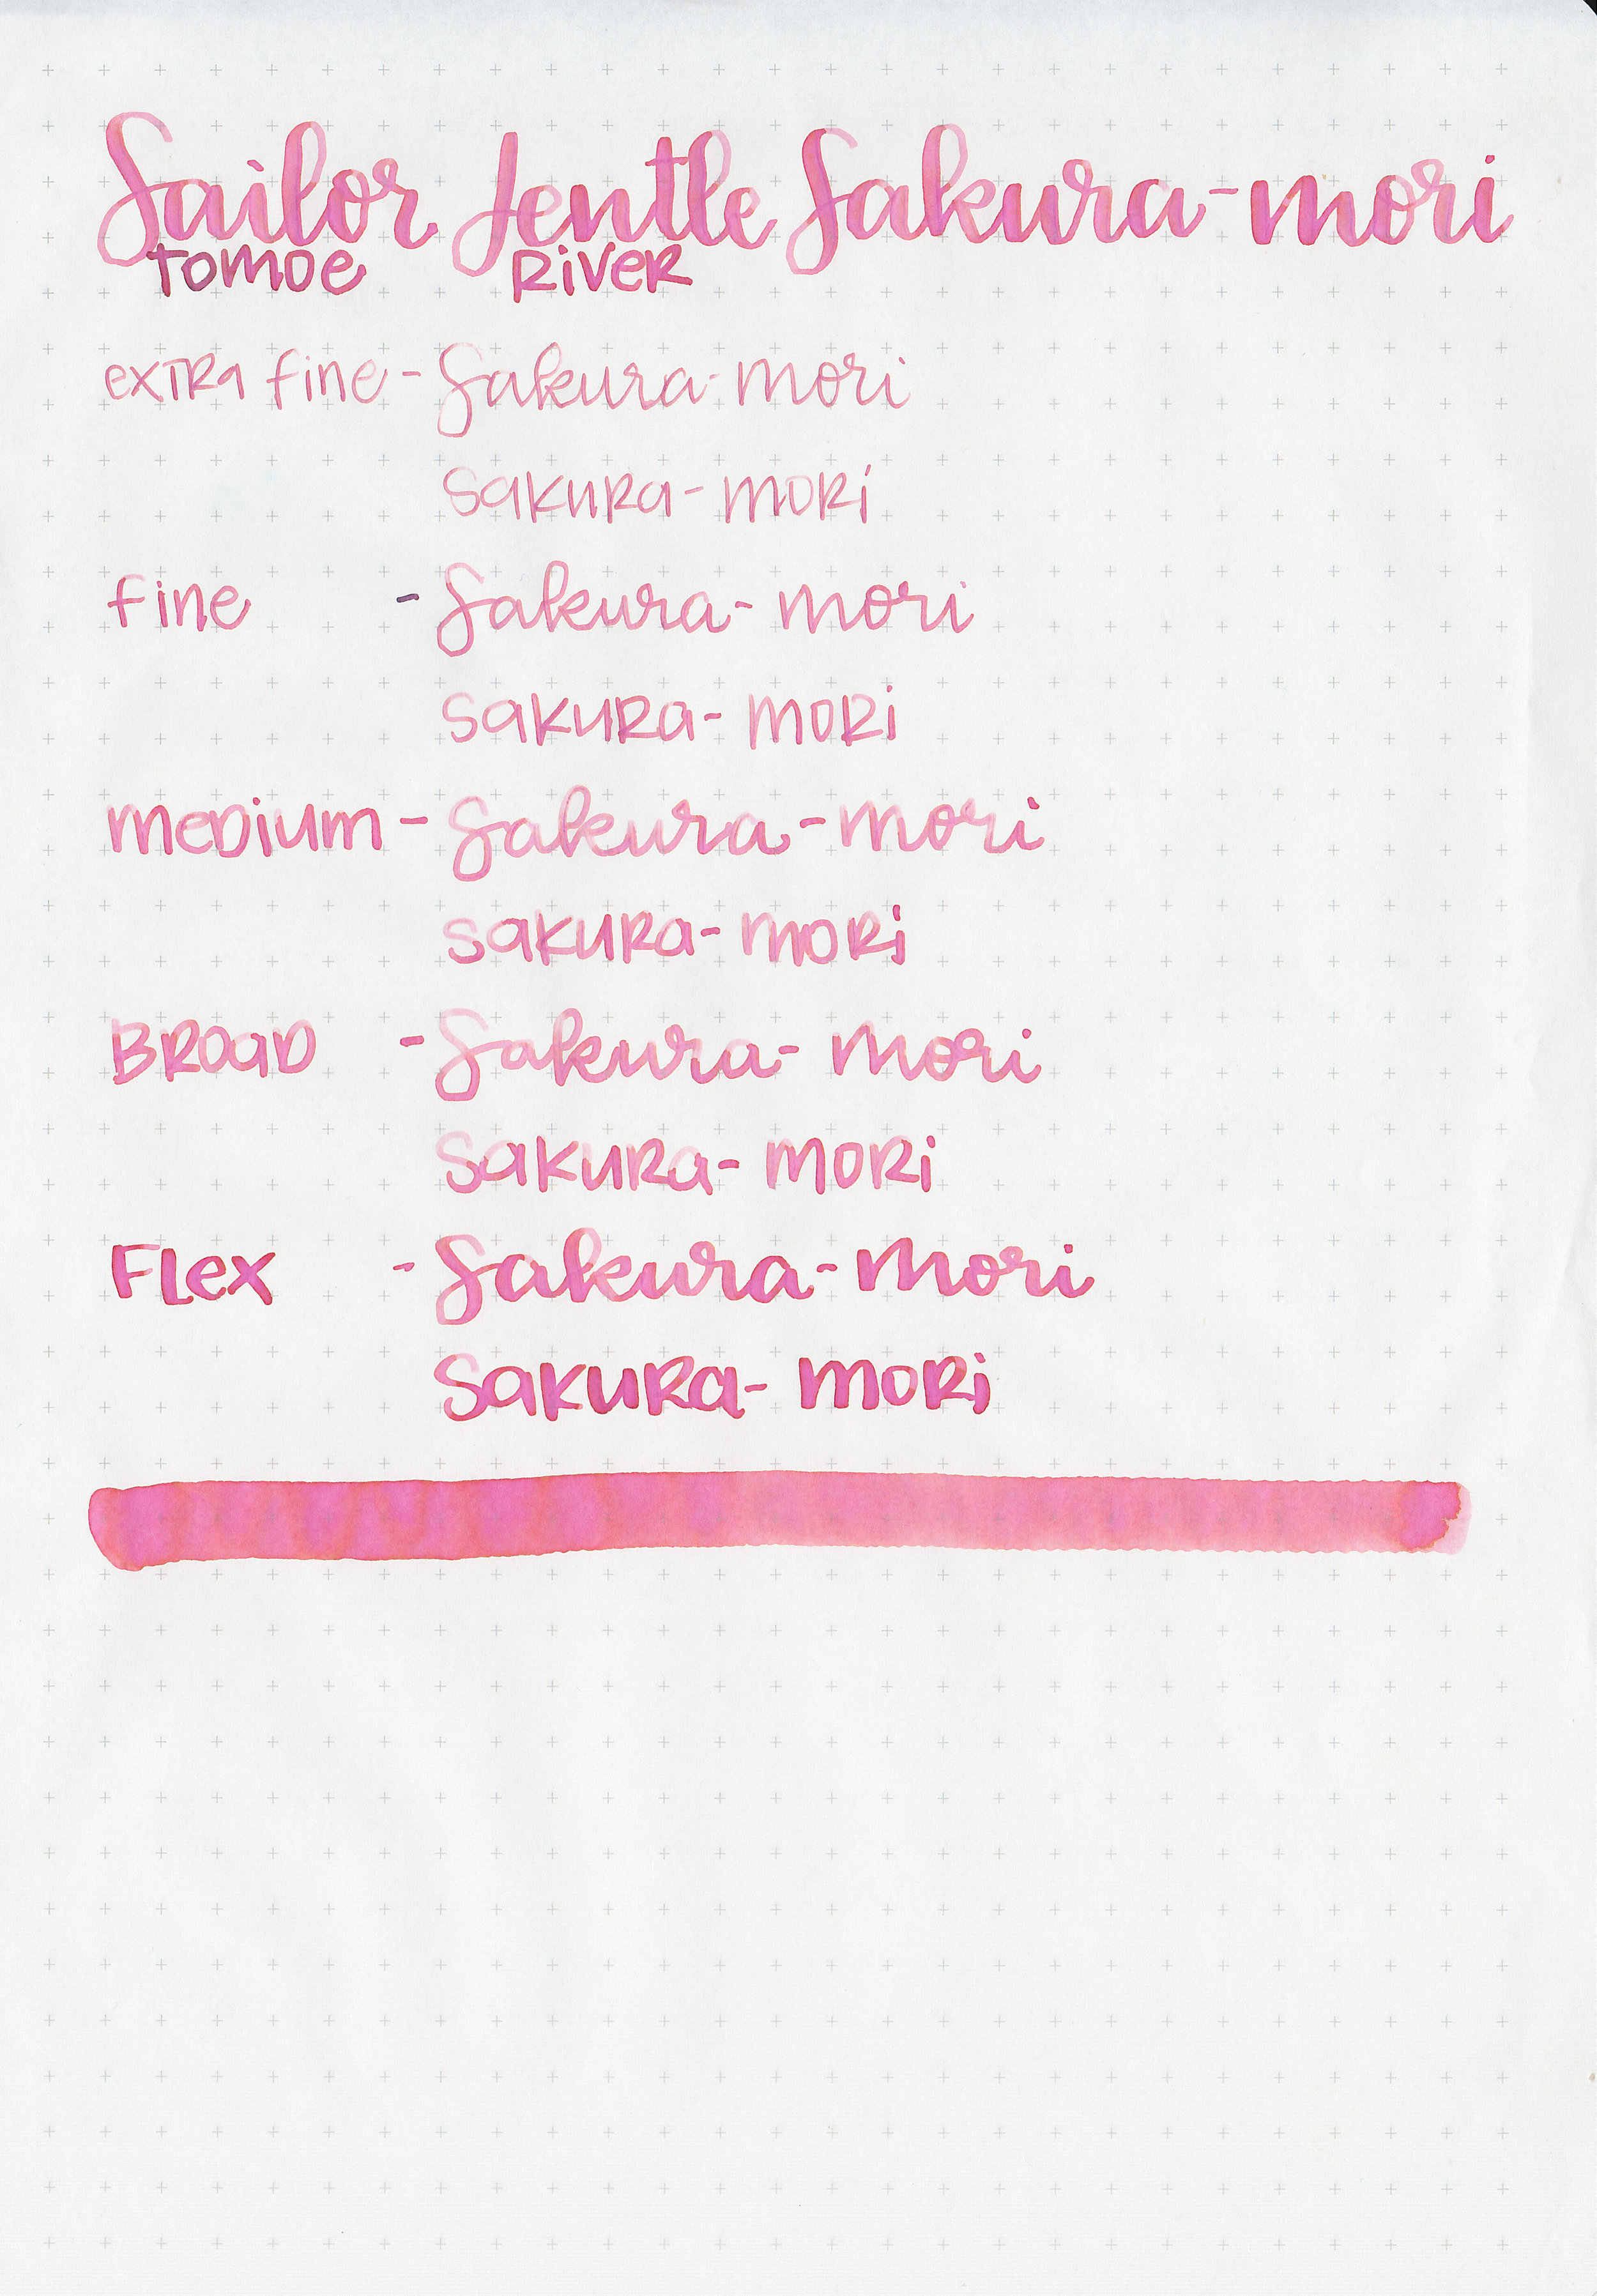 Sailor Jentle Sakura-mori
Tomoe River
extra fine - Sakura-mori
Sakura-mori
fine - Sakura-mori
Sakura-mori
Medium - Sakura-mori
Sakura-mori
Broad - Sakura-mori
Sakura-mori
Flex - Sakura-mori
Sakura-mori